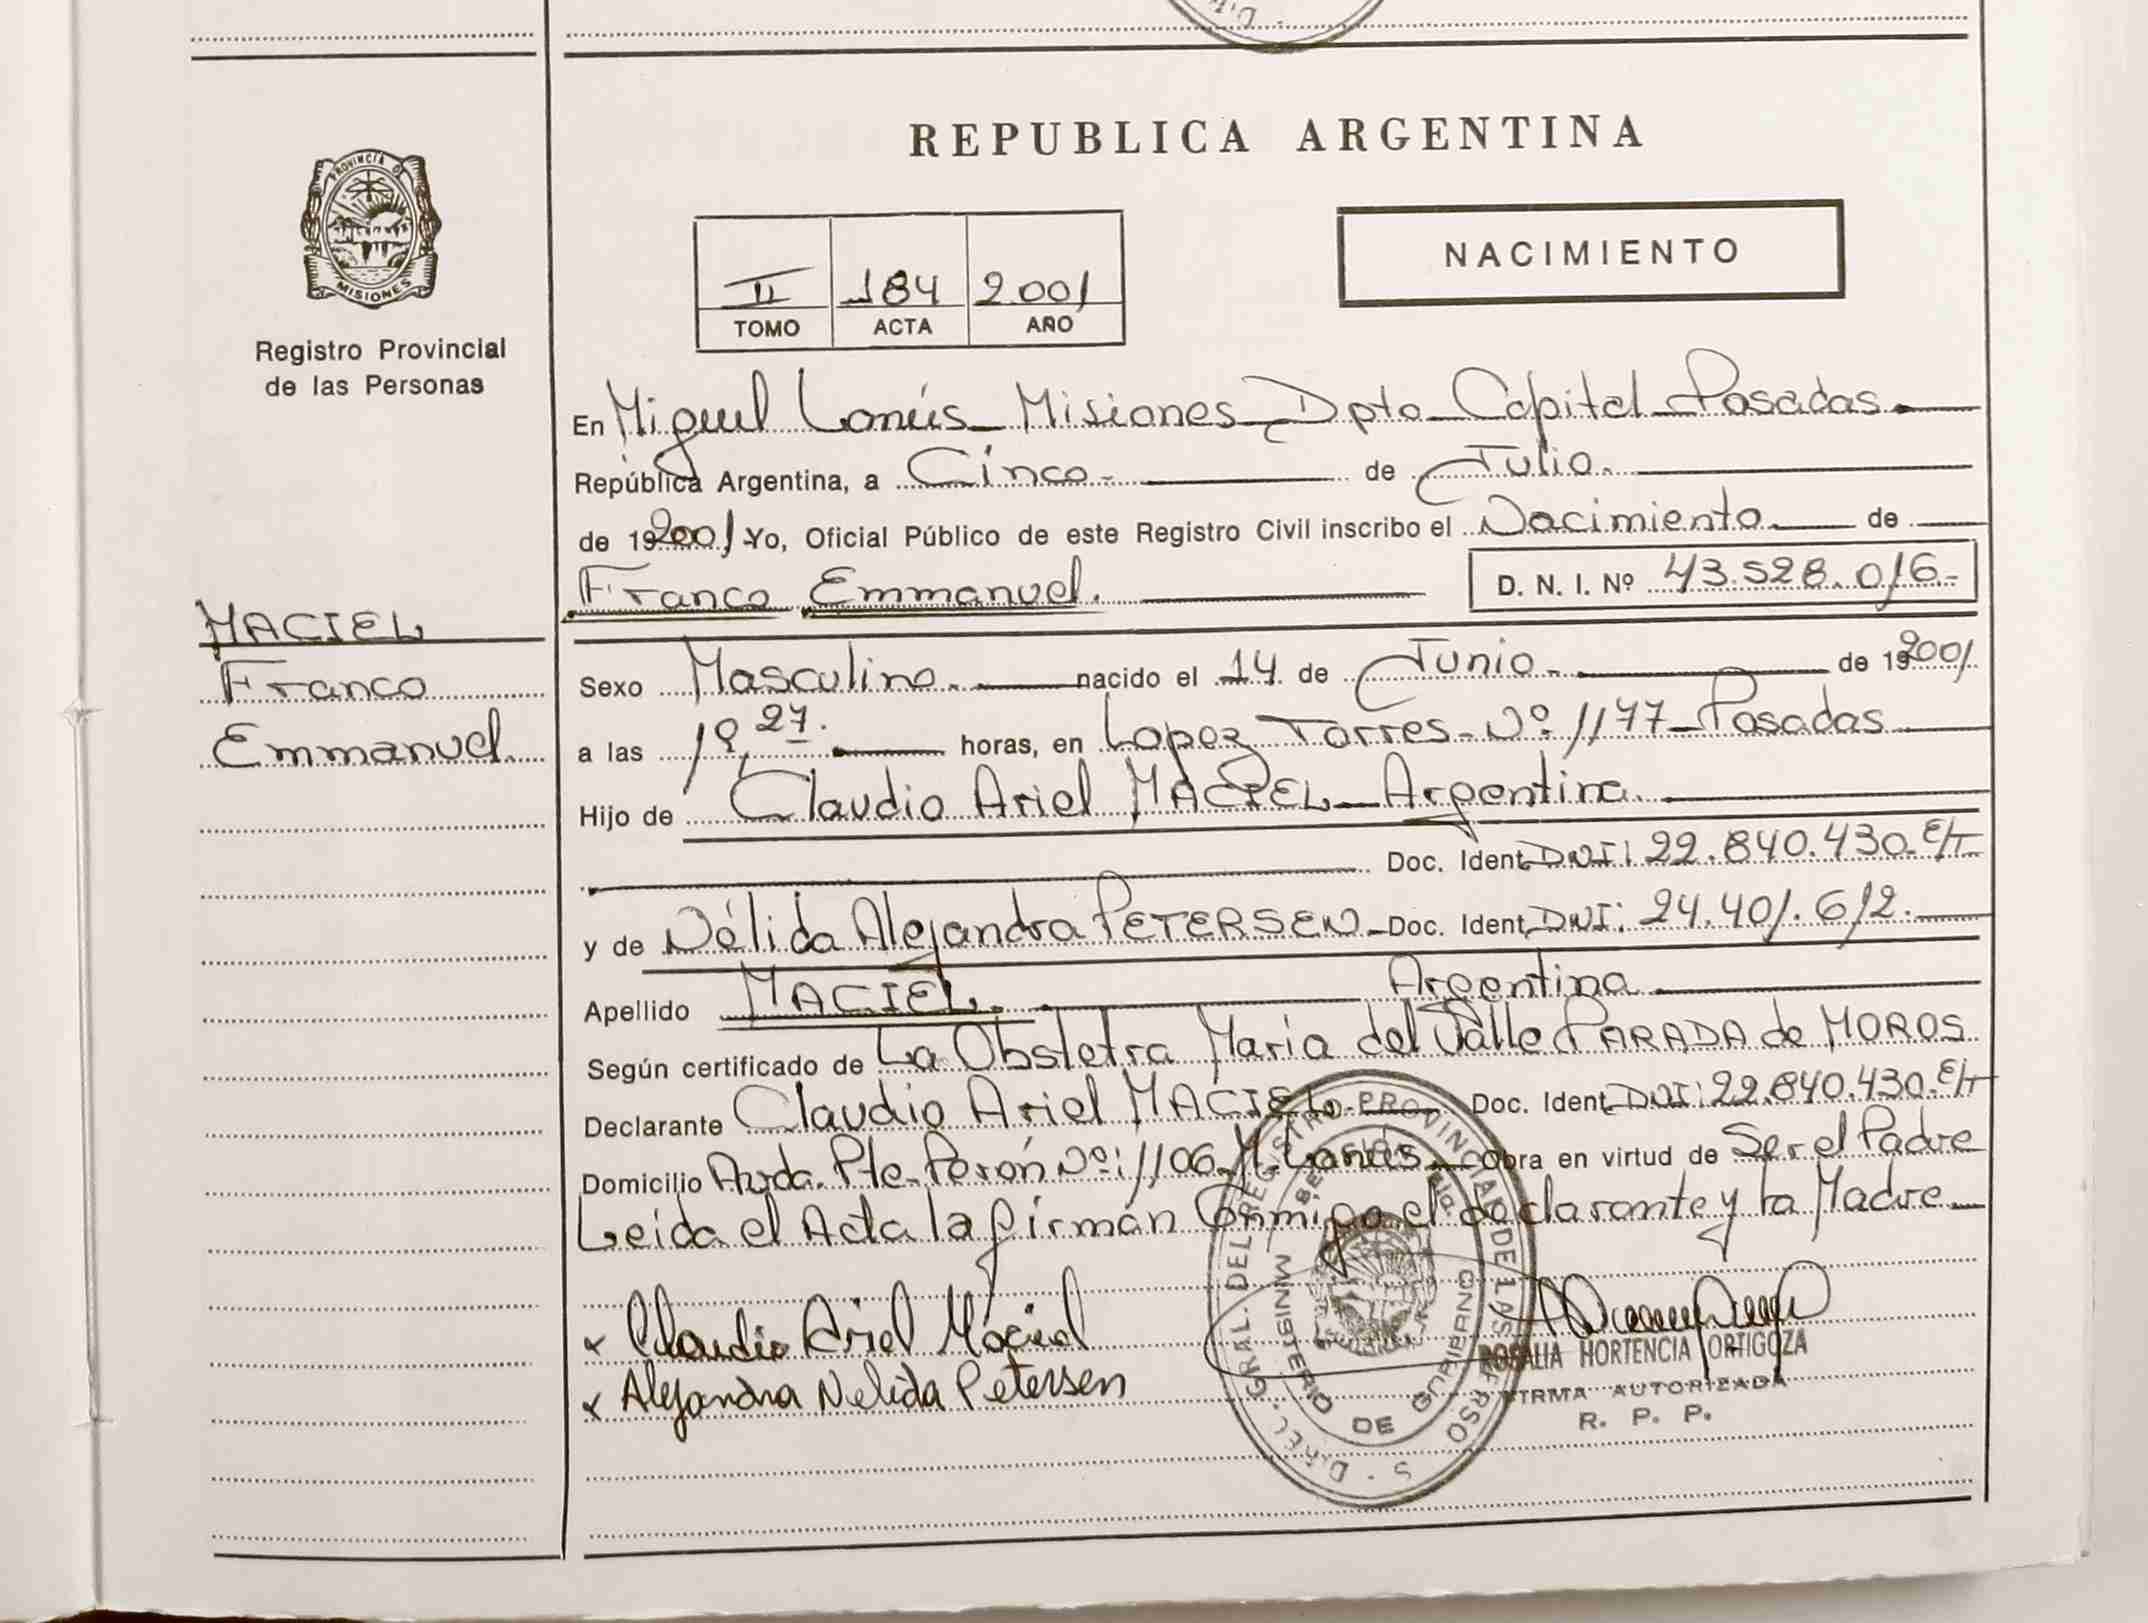 REPUBLICA ARGENTINA
PROVINCIA DE
MISIONES
Registro Provincial
de las Personas
NACIMIENTO
II 184 2.001
TOMO ACTA AÑO
En Miguel Lanús Misiones Dpto Capital Posadas
República Argentina, a Cinco de Julio
de 19 2001 Yo, Oficial Público de este Registro Civil inscribo el Nacimiento de
Franco Emmanuel. D. N. I. Nº 43.528.016-
MACIEL
Franco
Emmanuel
Sexo Masculino nacido el 14 de Junio de 19 2001
a las 27 horas, en Lopez Torres Nº 1177 Posadas
Hijo de Claudio Ariel MACIEL Argentina
Doc. Ident. DNI: 22.840.430. E/T
y de Nélida Alejandra PETERSEN Doc. Ident. DNI: 24.401.612.
Apellido MACIEL. Argentina
Según certificado de La Obstetra Maria del Valle PARADA de MOROS
Declarante Claudio Ariel MACIEL Doc. Ident. DNI: 22.840.430. E/T
Domicilio Avda. Pte. Perón Nº: 1106 M. Lanús Obra en virtud de Ser el Padre
Leida el Acta la firmán Conmigo el declarante y la Madre
x Claudio Ariel Maciel
x Alejandra Nelida Petersen
ROSALIA HORTENCIA ORTIGOZA
FIRMA AUTORIZADA
R. P. P.
GRAL. DEL REGISTRO PROVINCIAL DE LAS
MINISTERIO DE GOBIERNO